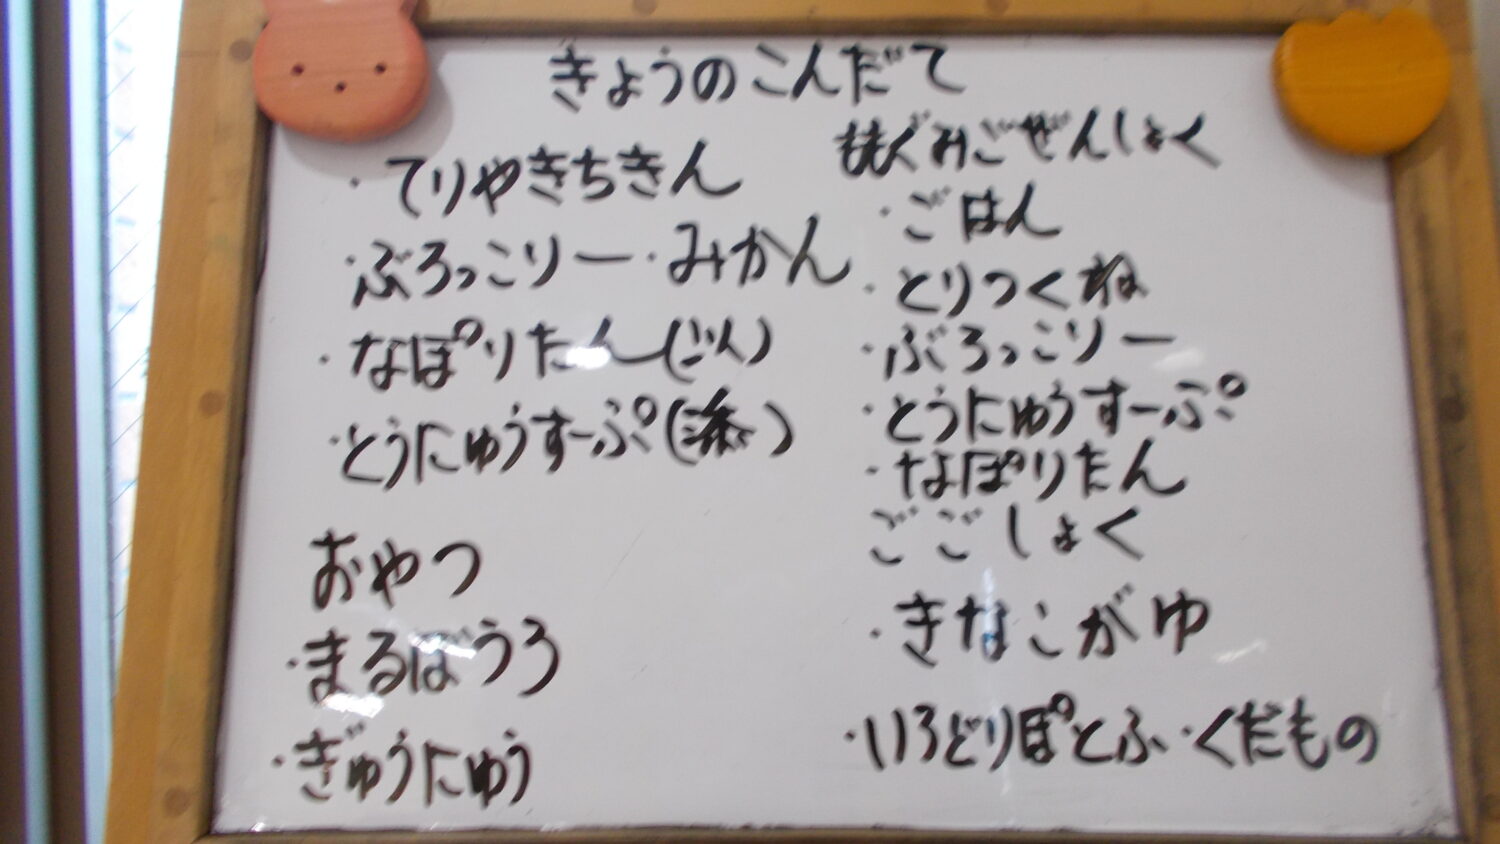 きょうのこんだて
・てりやきちきん
・ぶろっこりー・みかん
・なぽりたん(ごん)
・とうにゅうすーぷ( )
おやつ
・まるぼうろ
・ぎゅうにゅう
ももぐみごぜんしょく
・ごはん
・とりつくね
・ぶろっこりー
・とうにゅうすーぷ
・なぽりたん
ごごしょく
・きなこがゆ
・いろどりぽとふ・くだもの